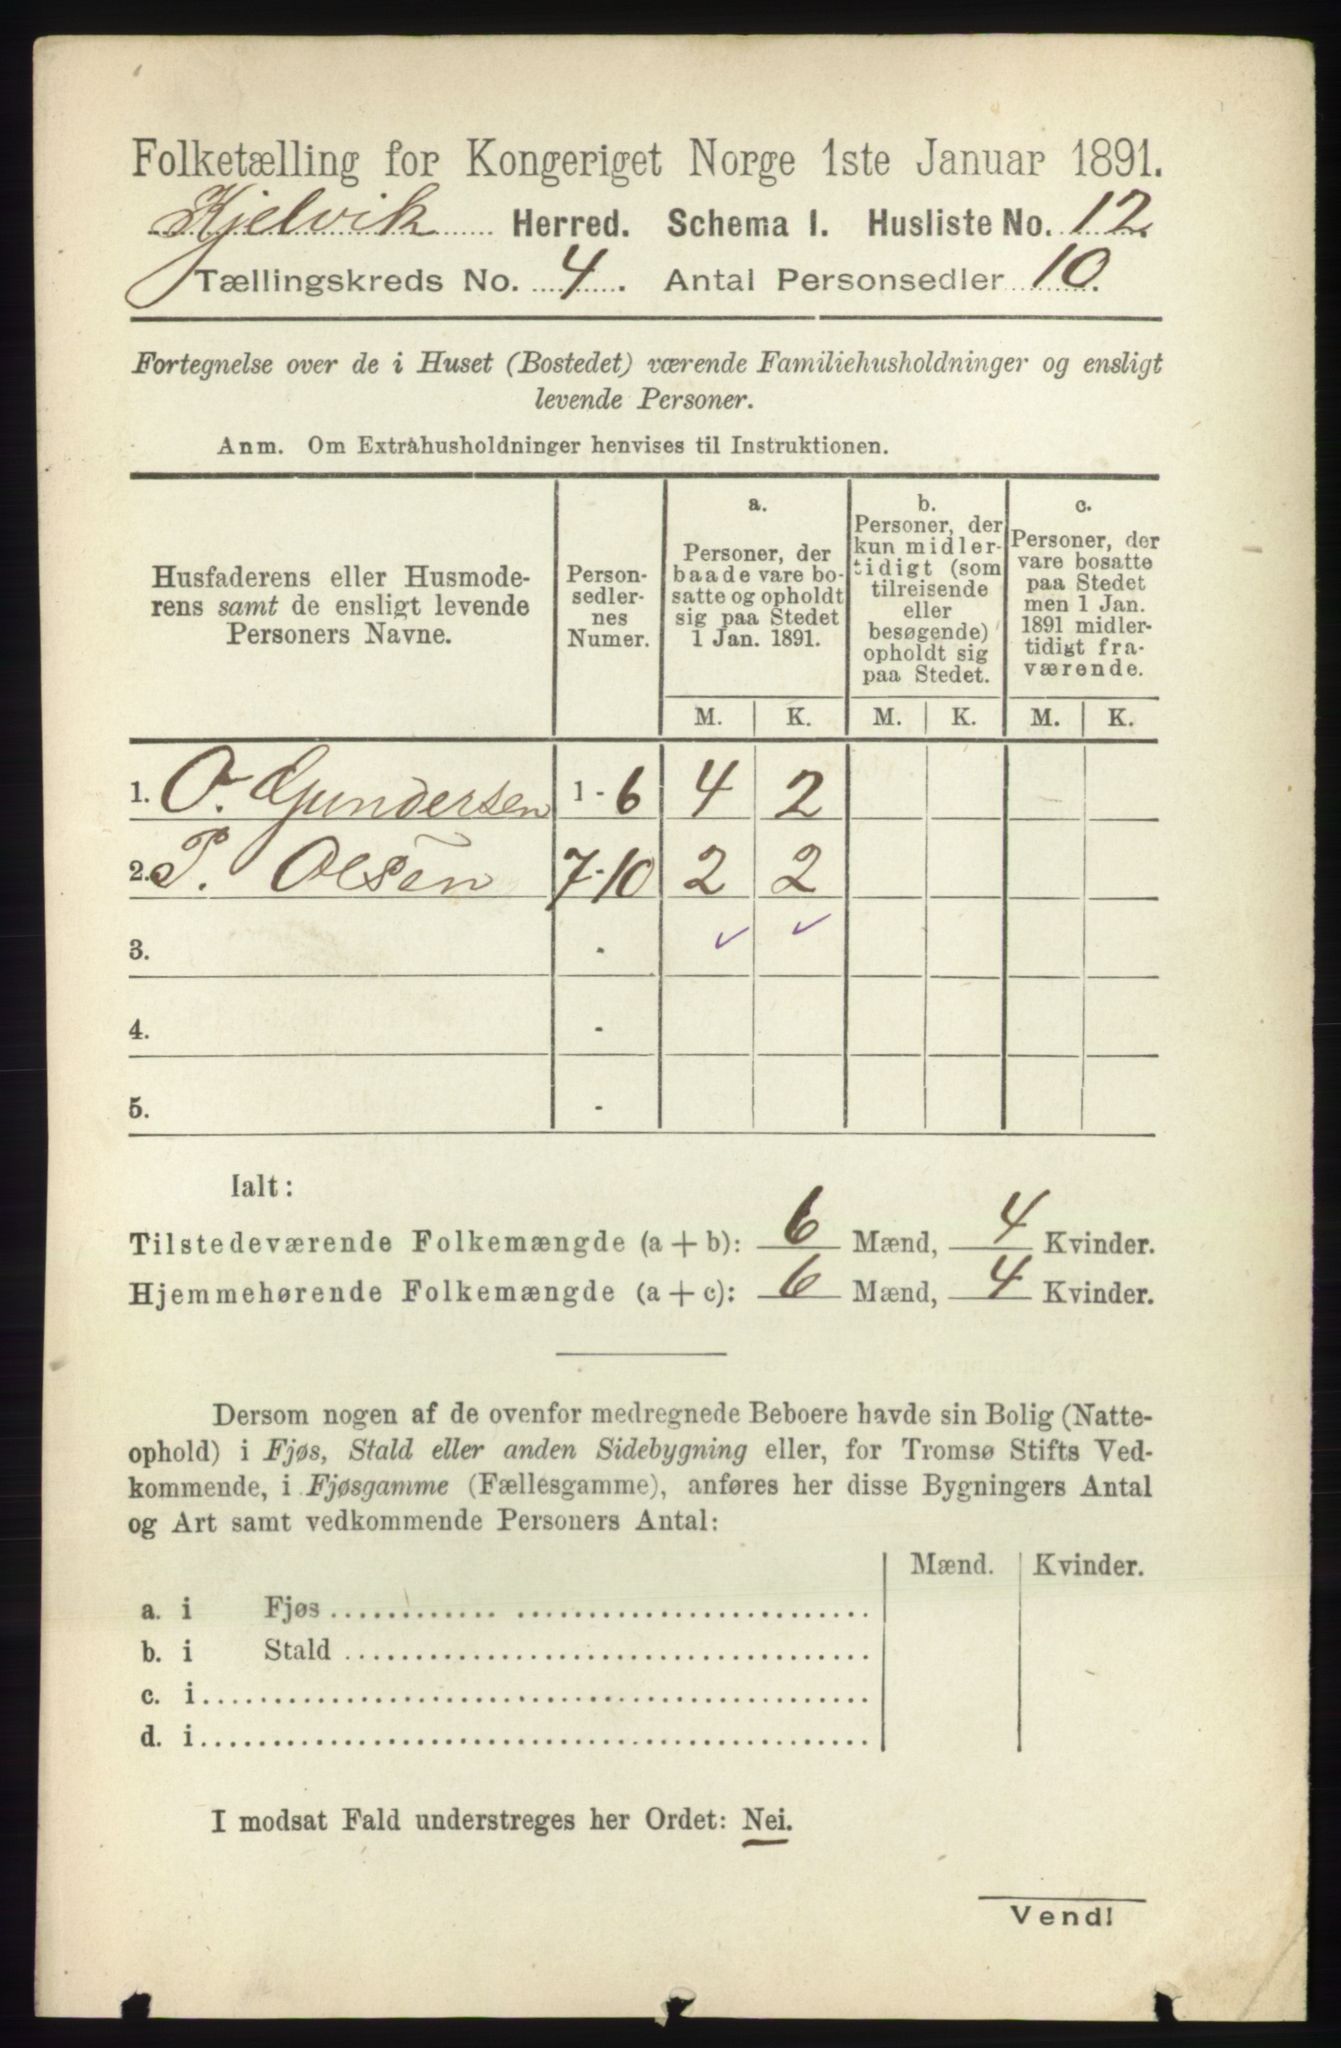 Folketælling for Kongeriget Norge 1ste Januar 1891.
Kjelvik Herred. Schema I. Husliste No. 12.
Tællingskreds No. 4. Antal Personsedler 10.
Fortegnelse over de i Huset (Bostedet) værende Familiehusholdninger og ensligt
levende Personer.
Anm. Om Extrahusholdninger henvises til Instruktionen.
Husfaderens eller Husmode-
rens samt de ensligt levende
Personers Navne.
Person-
sedler-
nes
Numer.
a.
Personer, der
baade vare bo-
satte og opholdt
sig paa Stedet
1 Jan. 1891.
b.
Personer, der
kun midler-
tidigt (som
tilreisende
eller
besøgende)
opholdt sig
paa Stedet.
c.
Personer, der
vare bosatte
paa Stedet
men 1 Jan.
1891 midler-
tidigt fra-
værende.
M. K. M. K. M. K.
1. O. Gundersen 1 - 6 4 2
2. P. Olsen 7-10 2 2
3. - ✓ ✓
4. -
5. -
Ialt:
Tilstedeværende Folkemængde (a + b): 6 Mænd, 4 Kvinder.
Hjemmehørende Folkemængde (a + c): 6 Mænd, 4 Kvinder.
Dersom nogen af de ovenfor medregnede Beboere havde sin Bolig (Natte-
ophold) i Fjøs, Stald eller anden Sidebygning eller, for Tromsø Stifts Ved-
kommende, i Fjøsgamme (Fællesgamme), anføres her disse Bygningers Antal
og Art samt vedkommende Personers Antal:
Mænd. Kvinder.
a. i Fjøs
b. i Stald
c. i
d. i
I modsat Fald understreges her Ordet: Nei.
Vend!